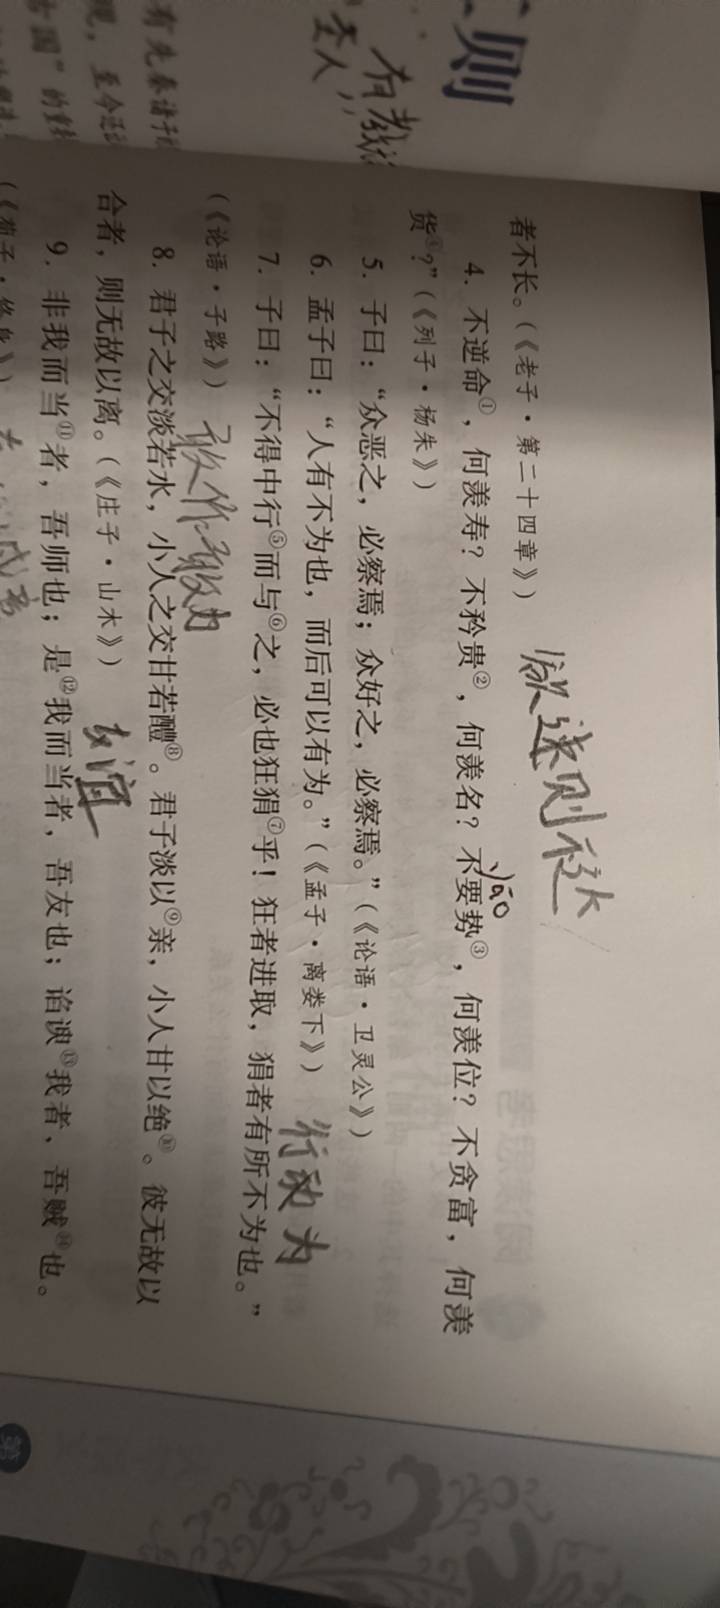 则
有先秦诸子
观，至今还
古国”的
圣人
有教
者不长。（《老子·第二十四章》）
欲速则不达
4. 不逆命①，何羡寿？不矜贵②，何羡名？不要势③，何羡位？不贪富，何羡
yāo
货④？”（《列子·杨朱》）
5. 子曰：“众恶之，必察焉；众好之，必察焉。”（《论语·卫灵公》）
6. 孟子曰：“人有不为也，而后可以有为。”（《孟子·离娄下》）
行动为
7. 子曰：“不得中行⑤而与⑥之，必也狂狷⑦乎！狂者进取，狷者有所不为也。”
（《论语·子路》）
敢作敢为
8. 君子之交淡若水，小人之交甘若醴⑧。君子淡以⑨亲，小人甘以绝⑩。彼无故以
合者，则无故以离。（《庄子·山木》）
9. 非我而当⑪者，吾师也；是⑫我而当者，吾友也；谄谀⑬我者，吾贼⑭也。
（《荀子·修身》）
第